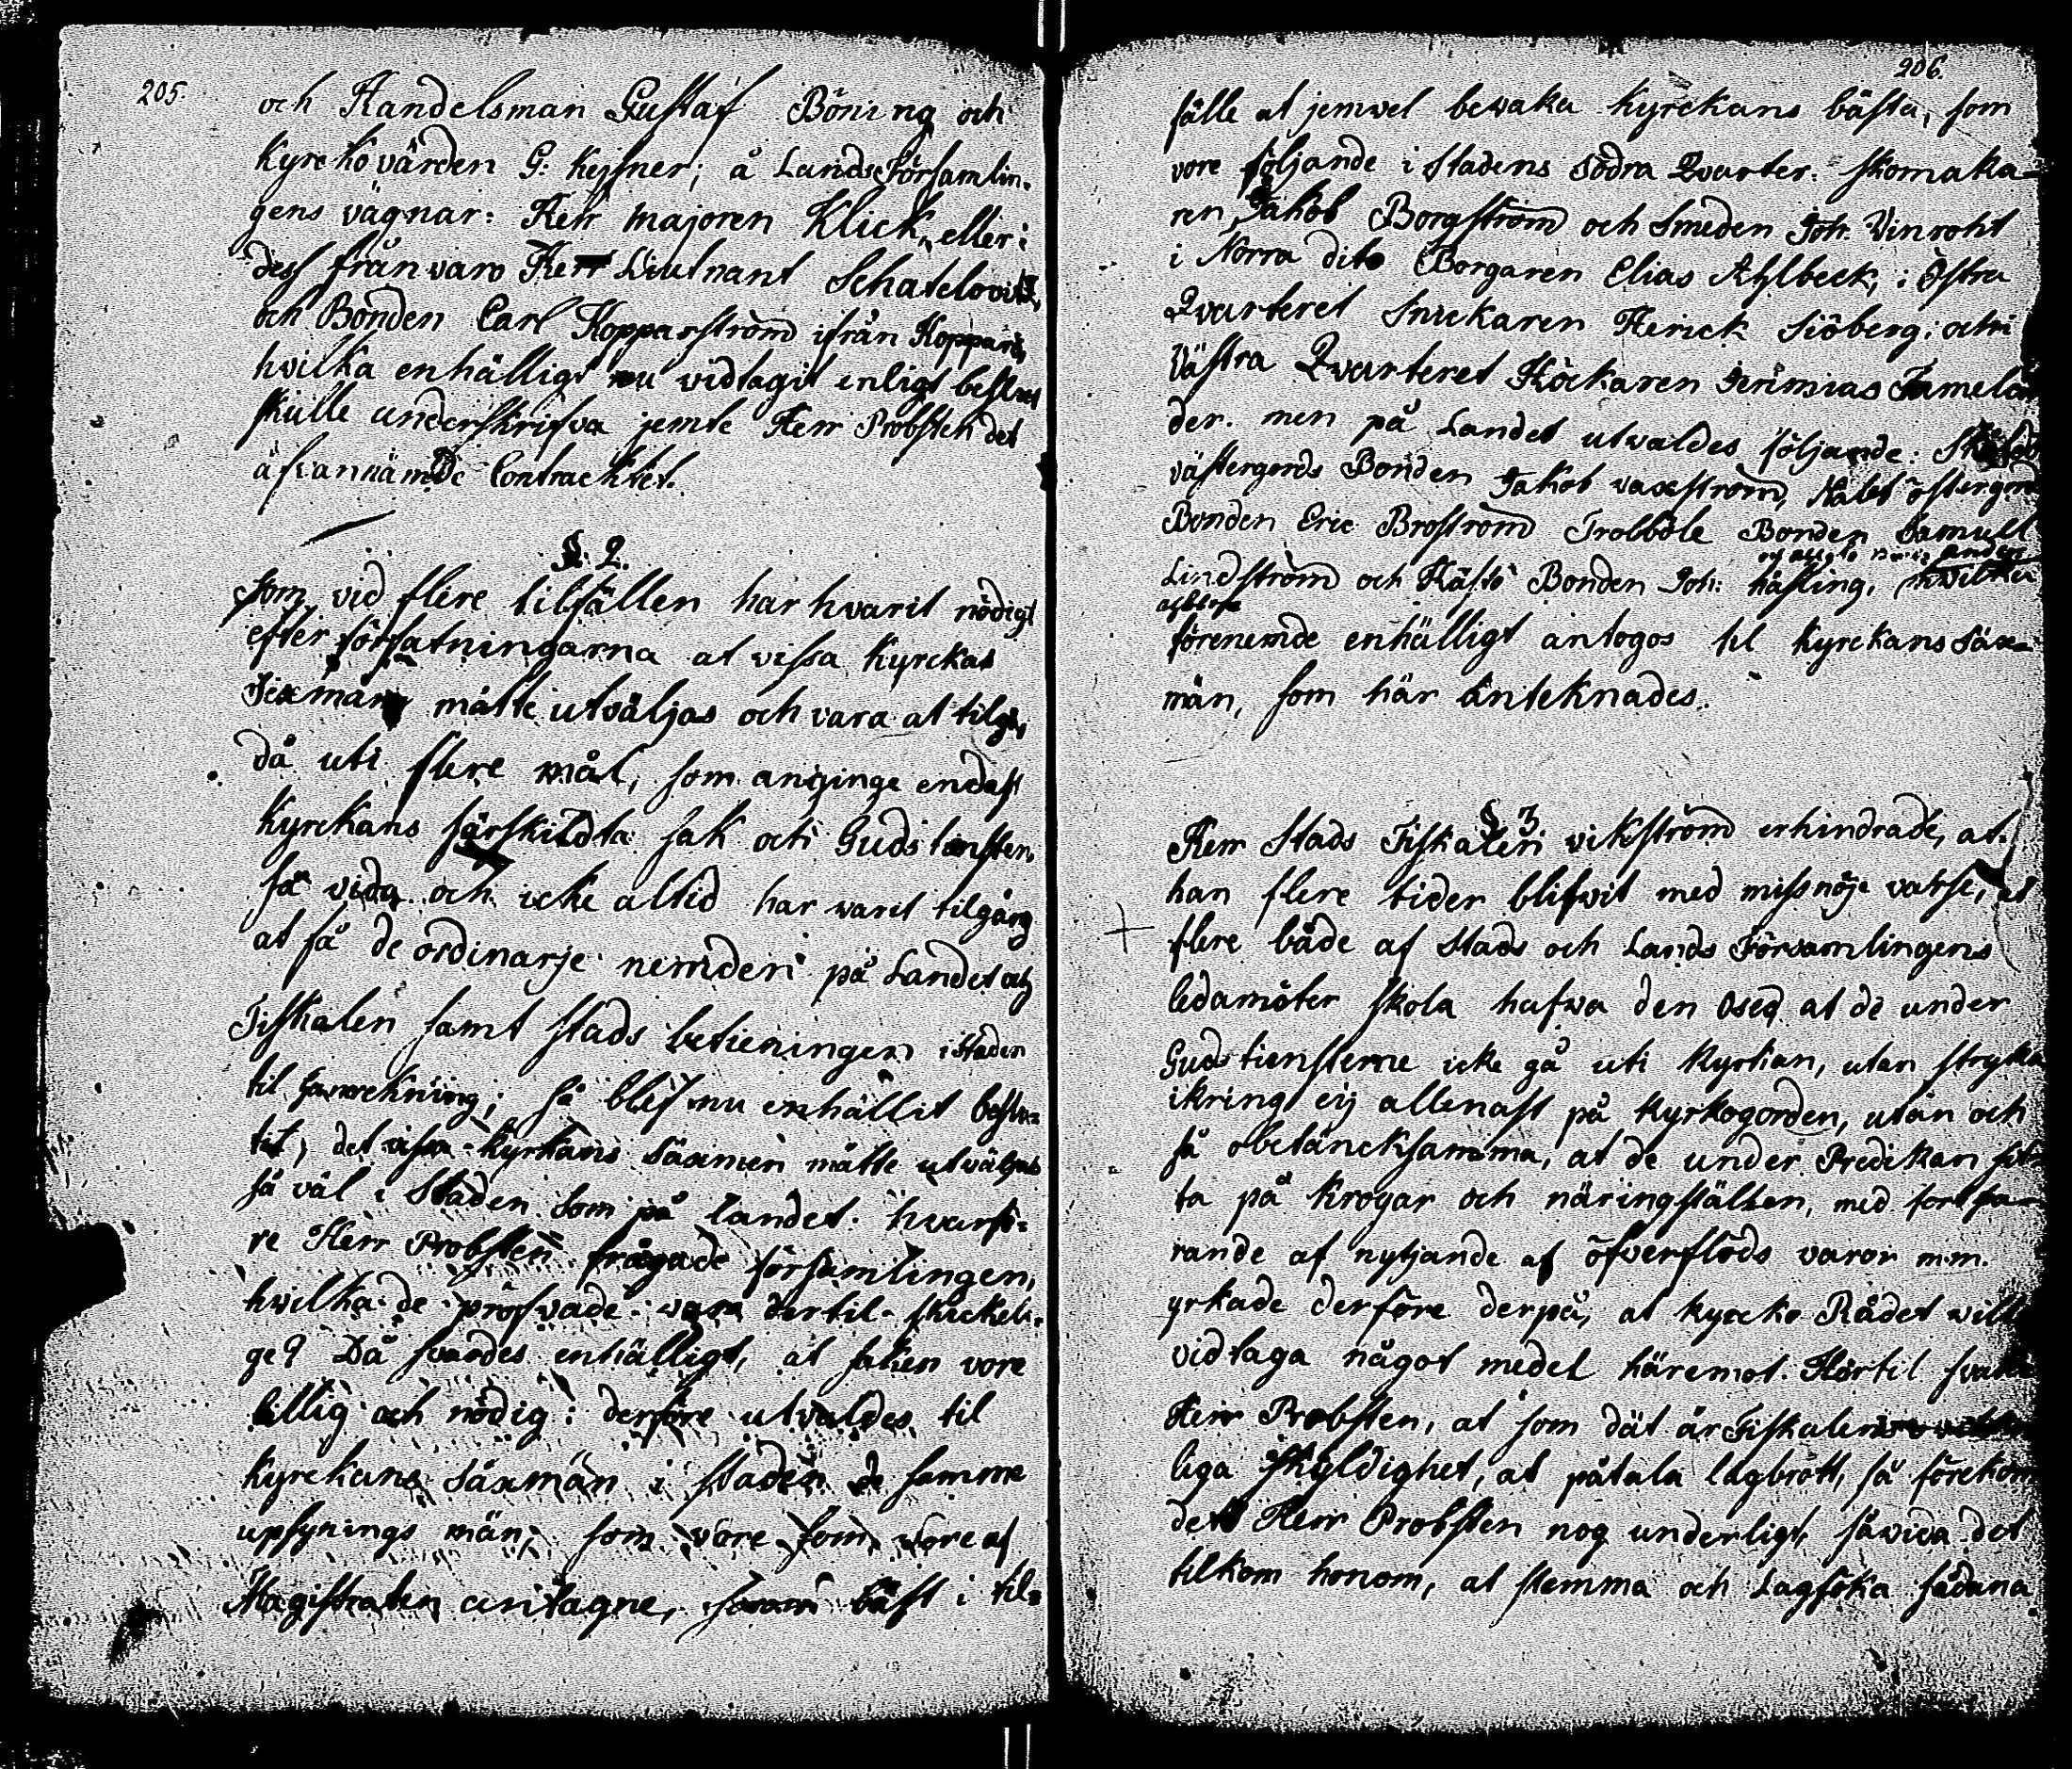 205.
och Handelsman Gustaf Böning och
Kyrckovärden G: Keisner; å Lands Församlin-
gens vägnar: Herr Majoren Klick, eller i
dess frånvaro Herr Lieutnant Schatelovitz,
och Bonden Carl Kopparström ifrån Kopparö,
hvilka enhälligt nu vidtagit enligt beslut
skulle underskrifva jemte Herr Probsten det
åfvannämde Contracktet.
§. 2.
Som vid flere tilfällen har hvarit nödigt
efter författningarna at vissa Kyrckas
Sexmän måtte utväljas och vara at tilgå,
då uti flere mål, som anginge endast
Kyrckans särskildta sak och Gudstensten,
så vida och icke altid har warit tilgång
at få de ordinarje nemden på Landet och
Fiskalen samt stads betieningen i staden
til hanrekning; så blef nu enhällit beslu-
tit, det vissa kyrkans säxmen måtte utväljas
så väl i Staden som på landet. hvarfö-
re Herr Probsten frågade församlingen,
hwilka de pröfvade vara dertil skickeli-
ge? Då svardes enhälligt, at saken vore
billig och nödig: derföre utvaldes til
Kyrckans säxmän i staden de samme
upsynings män, som vore som vore af
Magistraten antagne, bäst i til-
206.
fälle at jemwel bewaka Kyrckans bästa, som
vore följande i stadens södra Qvarter. skomaka-
ren Jakob Borgström och Smeden Joh. Vinroht
i Norra dito Borgaren Elias Ahlbeck, i Östra
Qvarteret Snickaren Herick Siöberg, och i
Västra Qvarteret Höckaren Jerimias Tamelan
der. men på Landet utvaldes följande:
västergords Bonden Jakob vaxström, östergord
Bonden Eric Broström Trolböle Bonden Samuel
Lindström och Hästö Bonden Joh: hästing,
förenemde enhälligt antogos til Kyrckans Säx-
män, som här anteknades.
§ 3
Herr Stads Fiskalen vikström erhindrade, at
han flere tider blifwit med missnöje varse, at
flere både af Stads och Lands Församlingens
ledamöter skola hafwa den osed at de under
Gudstiensterne icke gå uti kyrkan, utan stryka
ikring eij allenast på kyrkogorden, utan och
så obetäncksamma, at de under Predikan sit-
ta på Krogar och näringställen, med fortfa-
rande af nytjande af öfverflöds varor m.m.
yrkade derföre derpå, at kyrcko Rådet will
vidtaga något medel häremot. Härtil svara
Herr Probsten, at som dät är Fiskalens
liga skyldighet, at påtala lagbrott, så förekom
det Herr Probsten nog underligt, såvida det
tilkom honom, at stemma och Lagsöka sådana